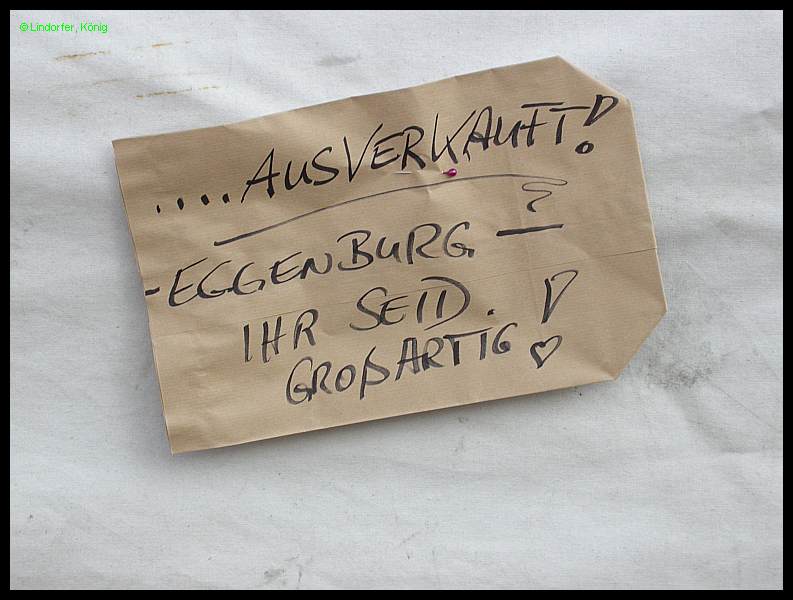 © Lindorfer, König
....AUSVERKAUFT!
-EGGENBURG -
IHR SEID.
GROßARTIG!